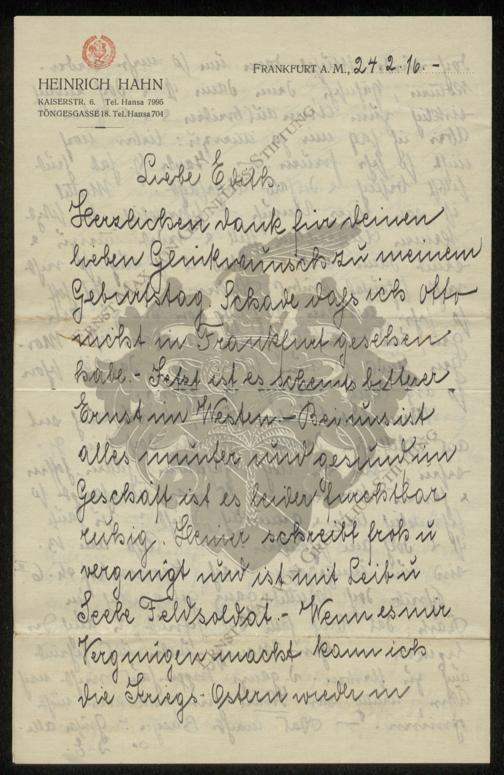 HEINRICH HAHN
KAISERSTR. 6. Tel. Hansa 7995
TÖNGESGASSE 18. Tel. Hansa 704
FRANKFURT A. M., 24 2. 16. -
Liebe Edith
Herzlichen dank für deinen
lieben Glückwunsch zu meinem
Geburtstag. Schade dass ich Otto
nicht in Frankfurt gesehen
habe. - Jetzt ist es scheints bitterer
Ernst im Westen - Bei uns ist
alles munter und gesund im
Geschäft ist es leider furchtbar
ruhig. schreibt froh u
vergnügt und ist mit Leib u
Seele Feldsoldat. - Wenn es mir
Vergnügen macht kann ich
die Kriegs-Ostern wieder in
ERNST MAX VON GRUNELIUS-STIFTUNG
ERNST MAX VON GRUNELIUS-STIFTUNG